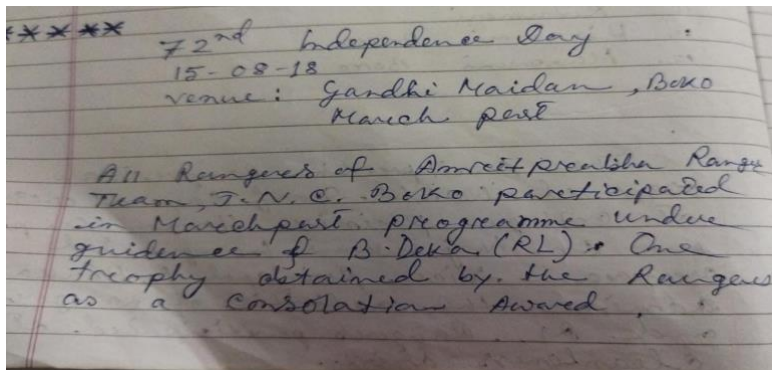 *****
72nd Independence Day
15-08-18
Venue: Gandhi Maidan, Boko
March past
All Rangers of Amritprabha Range
Team, J.N.C. Boko participated
in Marchpast programme under
guidence of B. Deka (RL). One
trophy obtained by the Rangers
as a Consolation Award.